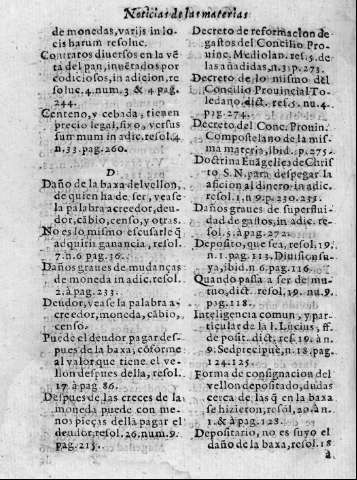 Noticias de las materias
de monedas, varijs in lo-
cis harum resoluc.
Contratos diversos en la vē
ta del pan, inuētados por
codiciosos, in adicion, re
soluc. 4. num. 3 & 4 pag.
244.
Centeno, y cebada, tienen
precio legal, fixo, versus
summum in adic. resol. 4
n. 33. pag. 260.
D
Daño de la baxa del vellon,
de quien ha de ser, vease
la palabra acreedor, deu-
dor, cābio, censo, y otras.
No es lo mismo escusarle q̄
adquirir ganancia, resol.
7. n. 6 pag. 36.
Daños graues de mudanças
de moneda in adic. resol.
2. à pag. 233.
Deudor, vease la palabra a-
creedor, moneda, cābio,
censo.
Puede el deudor pagar des-
pues de la baxa, cōforme
al valor que tiene el ve-
llon despues della, resol.
17 à pag 86.
Despues de las creces de la
moneda puede con me-
nos pieças della pagar el
deudor, resol. 26. num. 9.
pag. 215.
Decreto de reformacion de
gastos del Concilio Pro-
uinc. Mediolan. res. 5. de
las añadidas, n. 31. p. 273.
Decreto de lo mismo del
Concilio Prouincial To-
ledano, dict. res. 5. nu. 4.
pag. 274.
Decreto del Conc. Prouin.
Compostelano de la mis-
ma materia, ibid. p. 275.
Doctrina Euāgelica de Chris
to S. N. para despegar la
aficion al dinero in adic.
resol. 1. n 9. p. 230. 231.
Daños graues de superflui-
dad de gastos, in adic. re-
sol. 5. à pag. 272.
Deposito, que sea, resol, 19.
n. 1. pag. 113. Division su-
ya, ibid n 6. pag. 116.
Quando passa a ser de mu-
tuo, dict. resol, 19. nu. 9.
pag. 118.
Inteligencia comun, y par-
ticular de la l. Lucius, ff.
de posit. dict. res. 19. à n.
9. Sed precipuè, n. 18. pag.
124. 125.
Forma de consignacion del
vellon depositado, dudas
cerca de las q̄ en la baxa
se hizieron, resol, 20. à n.
1. & à pag. 128.
Depositario, no es suyo el
daño de la baxa, resol. 18
à